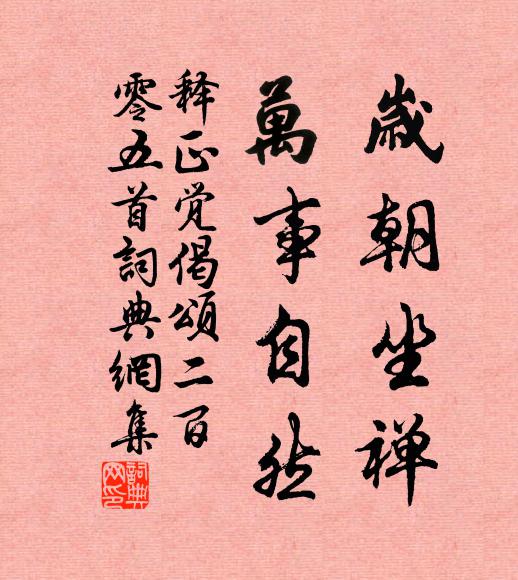 歲朝坐禅
萬事自然
释正覺偈頌二百
零五首詞典網集
詞典网印